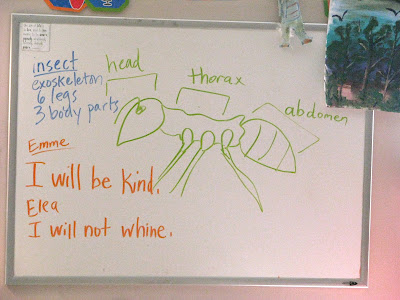 insect
exoskeleton
6 legs
3 body parts
head
thorax
abdomen
Emme
I will be kind.
Elea
I will not whine.